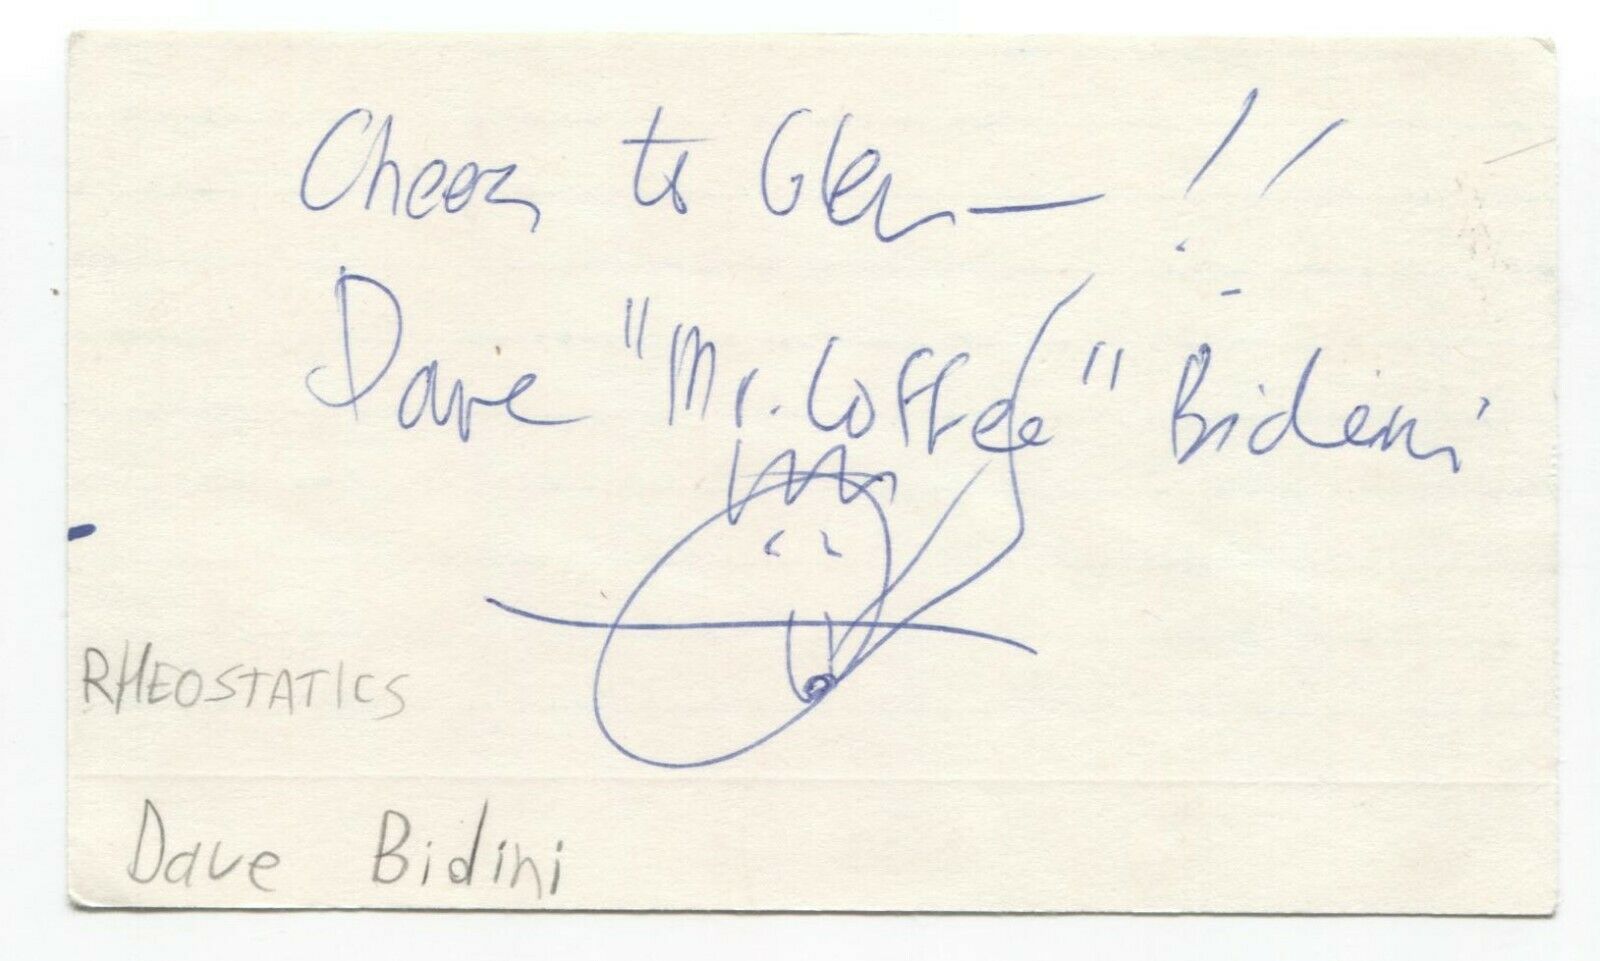 Cheers to Glen — !!
Dave "Mr. Coffee" Bidini
RHEOSTATICS
Dave Bidini